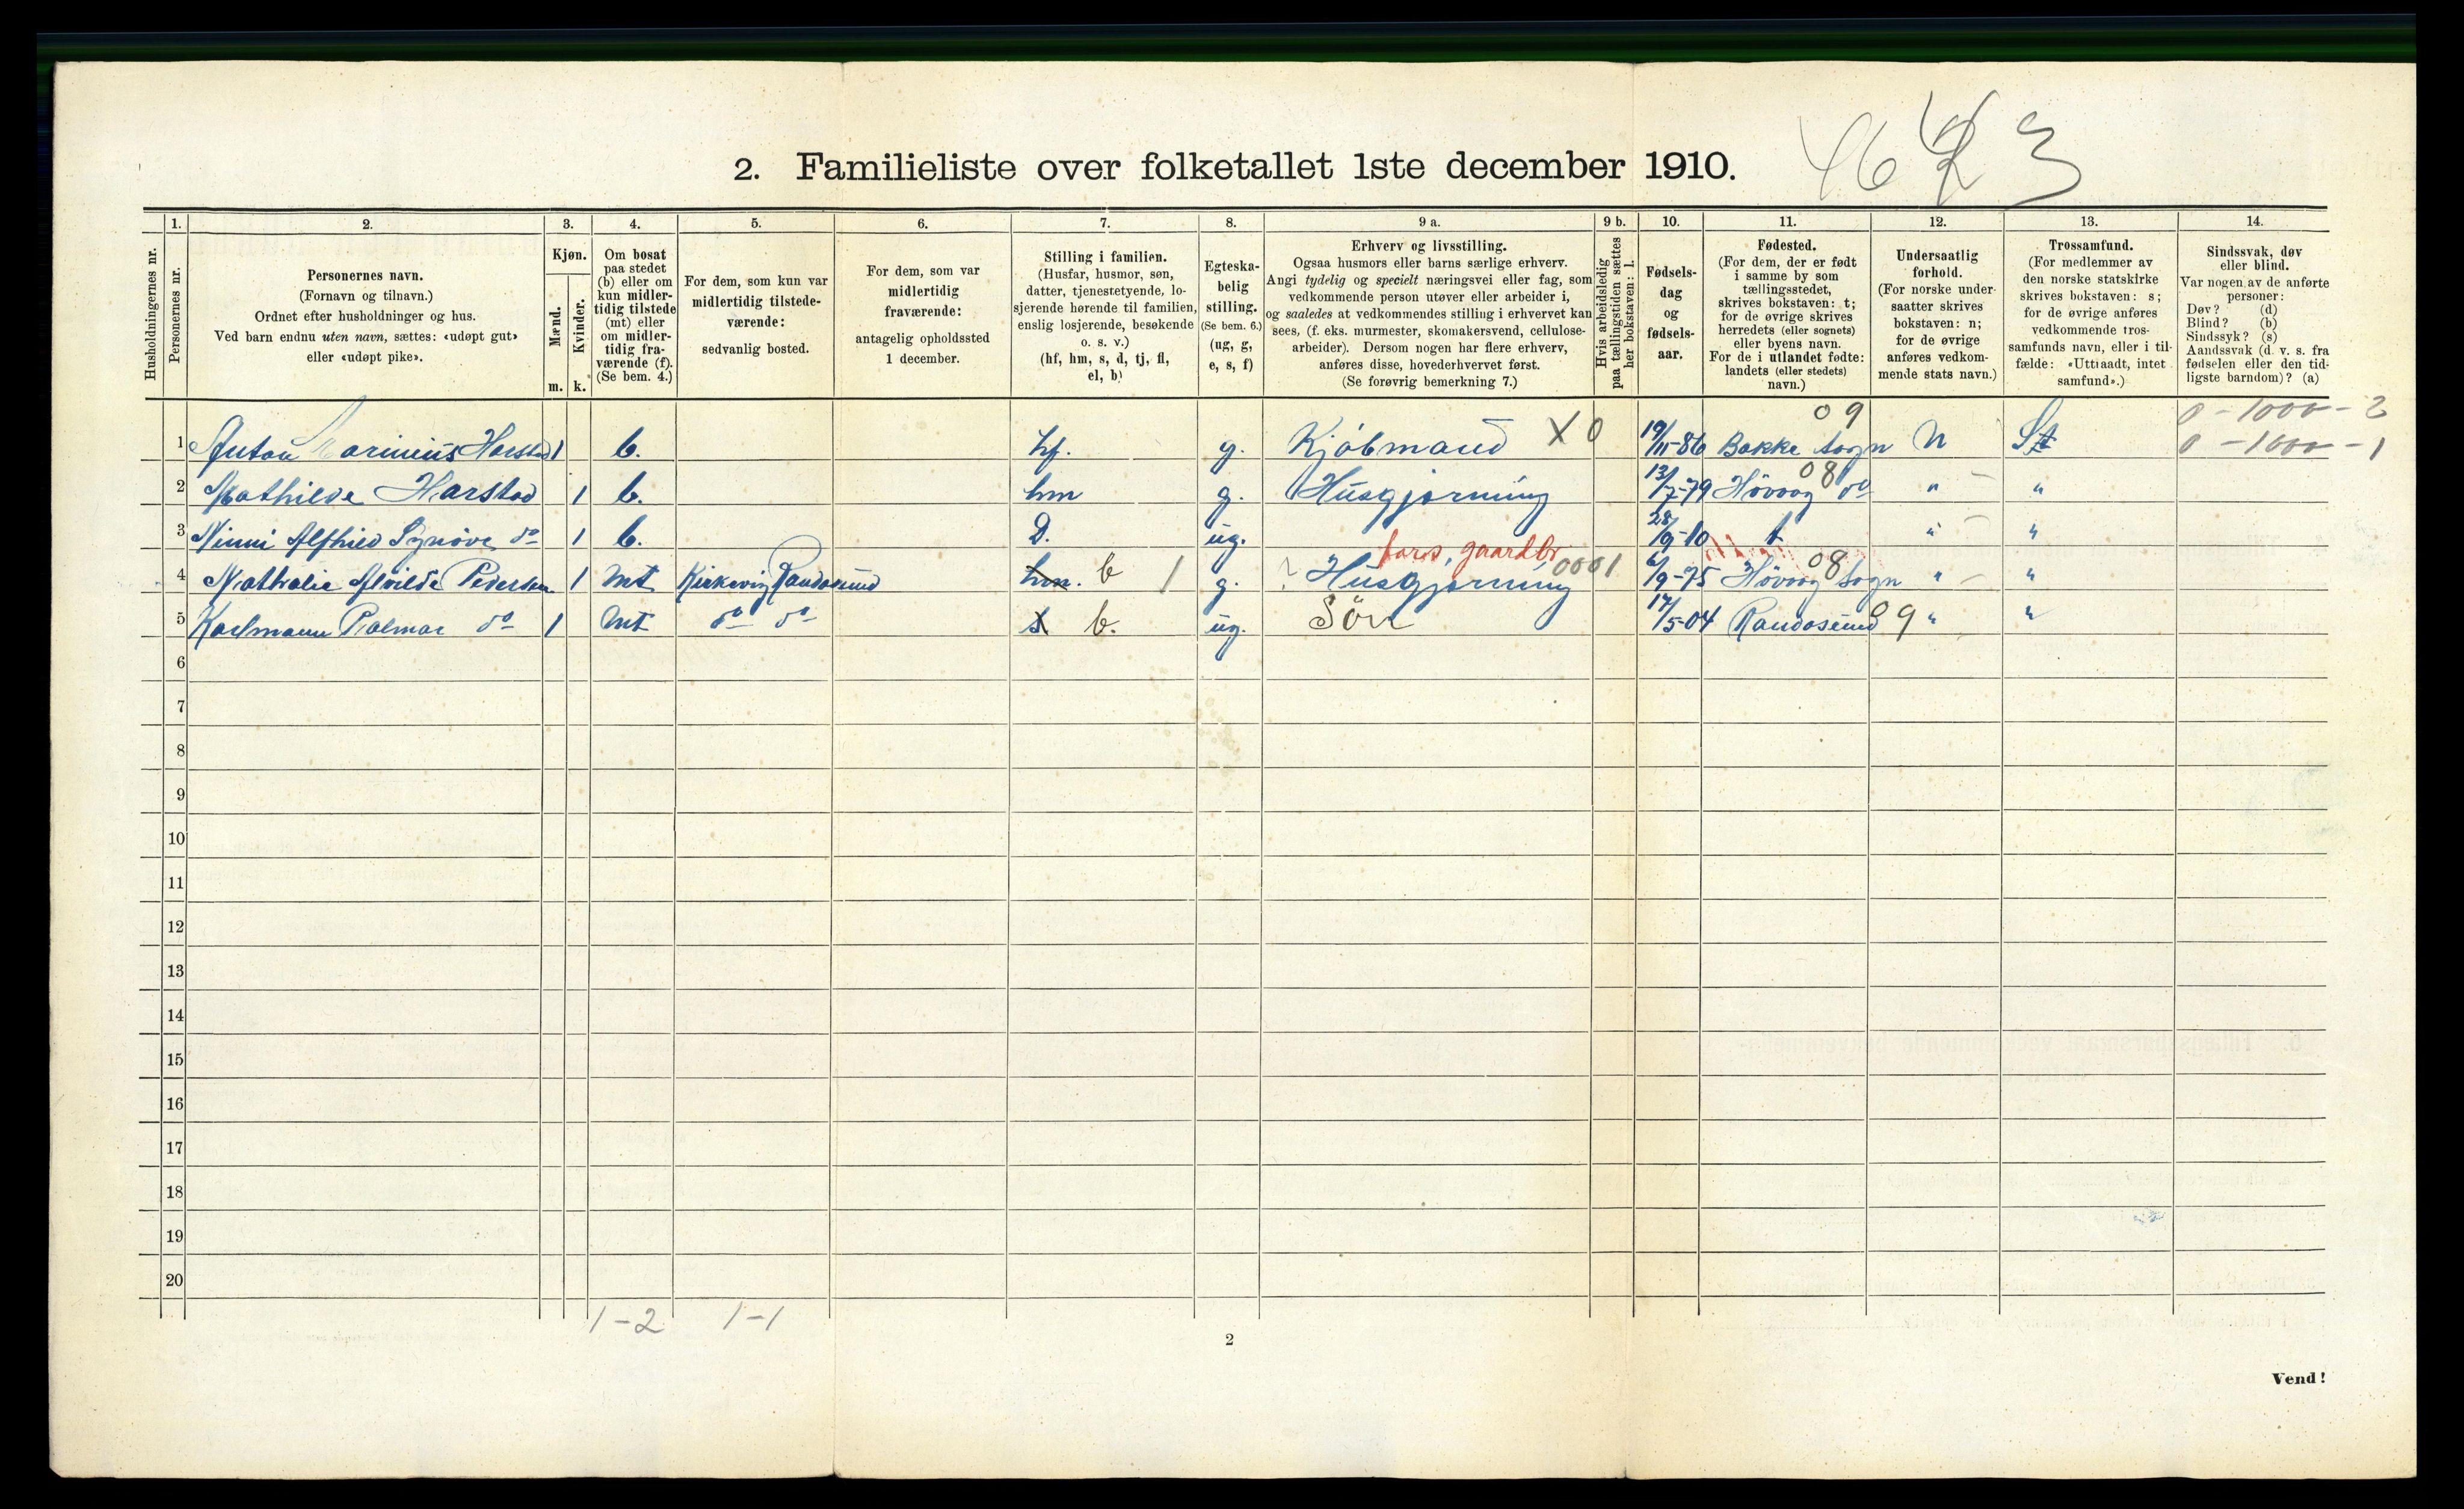 46 2 3
2. Familieliste over folketallet 1ste december 1910.
1. 2. 3. 4. 5. 6. 7. 8. 9 a. 9 b. 10. 11. 12. 13. 14.
Husholdningernes nr.
Personernes nr.
Personernes navn.
(Fornavn og tilnavn.)
Ordnet efter husholdninger og hus.
Ved barn endnu uten navn, sættes: «udøpt gut»
eller «udøpt pike».
Kjøn.
Mænd.
m.
Kvinder.
k.
Om bosat
paa stedet
(b) eller om
kun midler-
tidig tilstede
(mt) eller
om midler-
tidig fra-
værende (f).
(Se bem. 4.)
For dem, som kun var
midlertidig tilstede-
værende:
sedvanlig bosted.
For dem, som var
midlertidig
fraværende:
antagelig opholdssted
1 december.
Stilling i familien.
(Husfar, husmor, søn,
datter, tjenestetyende, lo-
sjerende hørende til familien,
enslig losjerende, besøkende
o. s. v.)
(hf, hm, s, d, tj, fl,
el, b)
Egteska-
belig
stilling.
(Se bem. 6.)
(ug, g,
e, s, f)
Erhverv og livsstilling.
Ogsaa husmors eller barns særlige erhverv.
Angi tydelig og specielt næringsvei eller fag, som
vedkommende person utøver eller arbeider i,
og saaledes at vedkommendes stilling i erhvervet kan
sees, (f. eks. murmester, skomakersvend, cellulose-
arbeider). Dersom nogen har flere erhverv,
anføres disse, hovederhvervet først.
(Se forøvrig bemerkning 7.)
Hvis arbeidsledig
paa tællingstiden sættes
her bokstaven: l.
Fødsels-
dag
og
fødsels-
aar.
Fødested.
(For dem, der er født
i samme by som
tællingsstedet,
skrives bokstaven: t;
for de øvrige skrives
herredets (eller sognets)
eller byens navn.
For de i utlandet fødte:
landets (eller stedets)
navn.)
Undersaatlig
forhold.
(For norske under-
saatter skrives
bokstaven: n;
for de øvrige
anføres vedkom-
mende stats navn.)
Trossamfund.
(For medlemmer av
den norske statskirke
skrives bokstaven: s;
for de øvrige anføres
vedkommende tros-
samfunds navn, eller i til-
fælde: «Uttraadt, intet
samfund».)
Sindssvak, døv
eller blind.
Var nogen av de anførte
personer:
Døv? (d)
Blind? (b)
Sindssyk? (s)
Aandssvak (d. v. s. fra
fødselen eller den tid-
ligste barndom)? (a)
09 0-1000-2
1 Anton Marinius Harstad 1 b. hf. g. Kjöbmand X 0 19/11-86 Bakke Sogn N St 0-1000-1
2 Mathilde Harstad 1 b. hm g. Husgjerning 13/7-79 Hövaag do 08 " "
3 Ninni Alfhild Synöve do 1 b. D. ug. 28/9-10 t " "
fars, gaardbr.
4 Nathalie Alvilde Pedersen 1 mt Kirkevig Randösund hm. b 1 g. Husgjerning 0001 6/9-75 Hövaag Sogn 08 " "
5 Karlmann Palmar do 1 mt do do s b. ug. Sön 17/5-04 Randösund 09 " "
6
7
8
9
10
11
12
13
14
15
16
17
18
19
20
1-2 1-1
2
Vend!